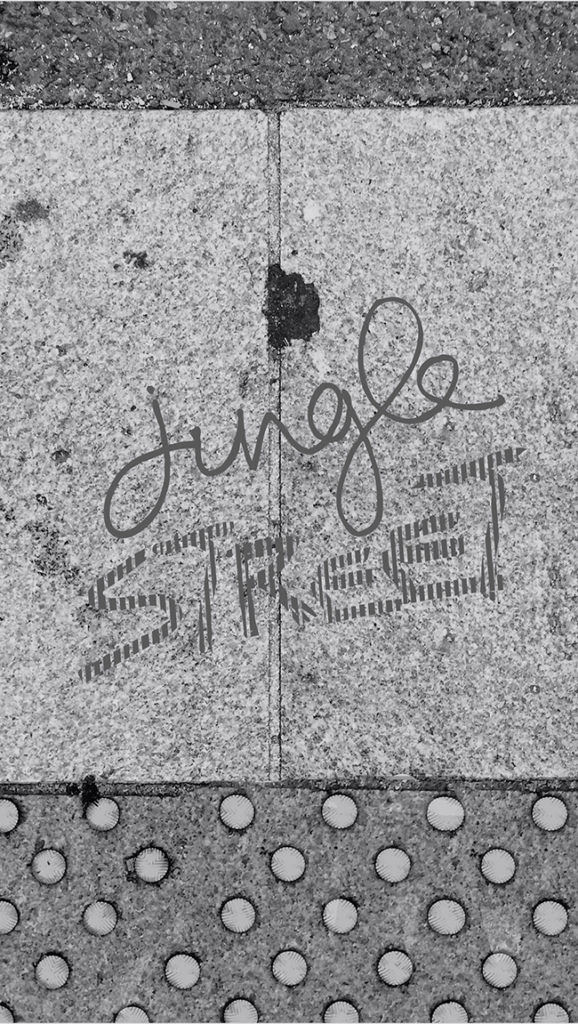 jungle
STREET